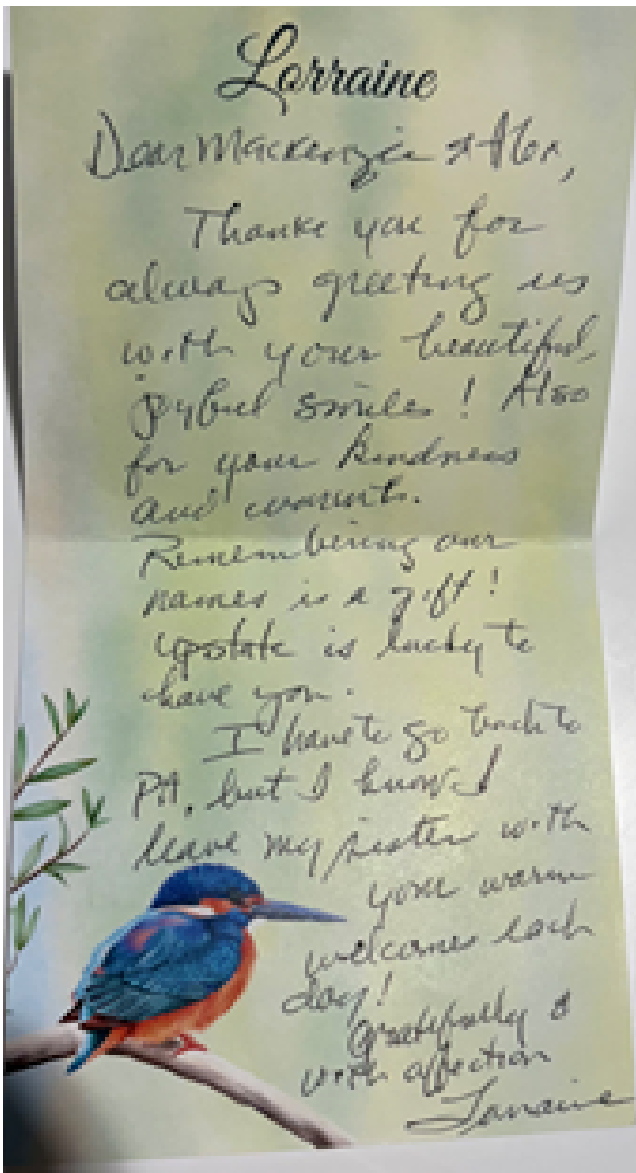 Lorraine
Dear Mackenzie &
Thank you for
always greeting us
with your beautiful,
joyful smiles! Also
for your kindness
and warmth.
Remembering our
names is a gift!
Upstate is lucky to
have you.
I have to go back to
PA, but I know I
leave my sister with
your warm
welcomes each
day!
Gratefully &
with affection
Lorraine